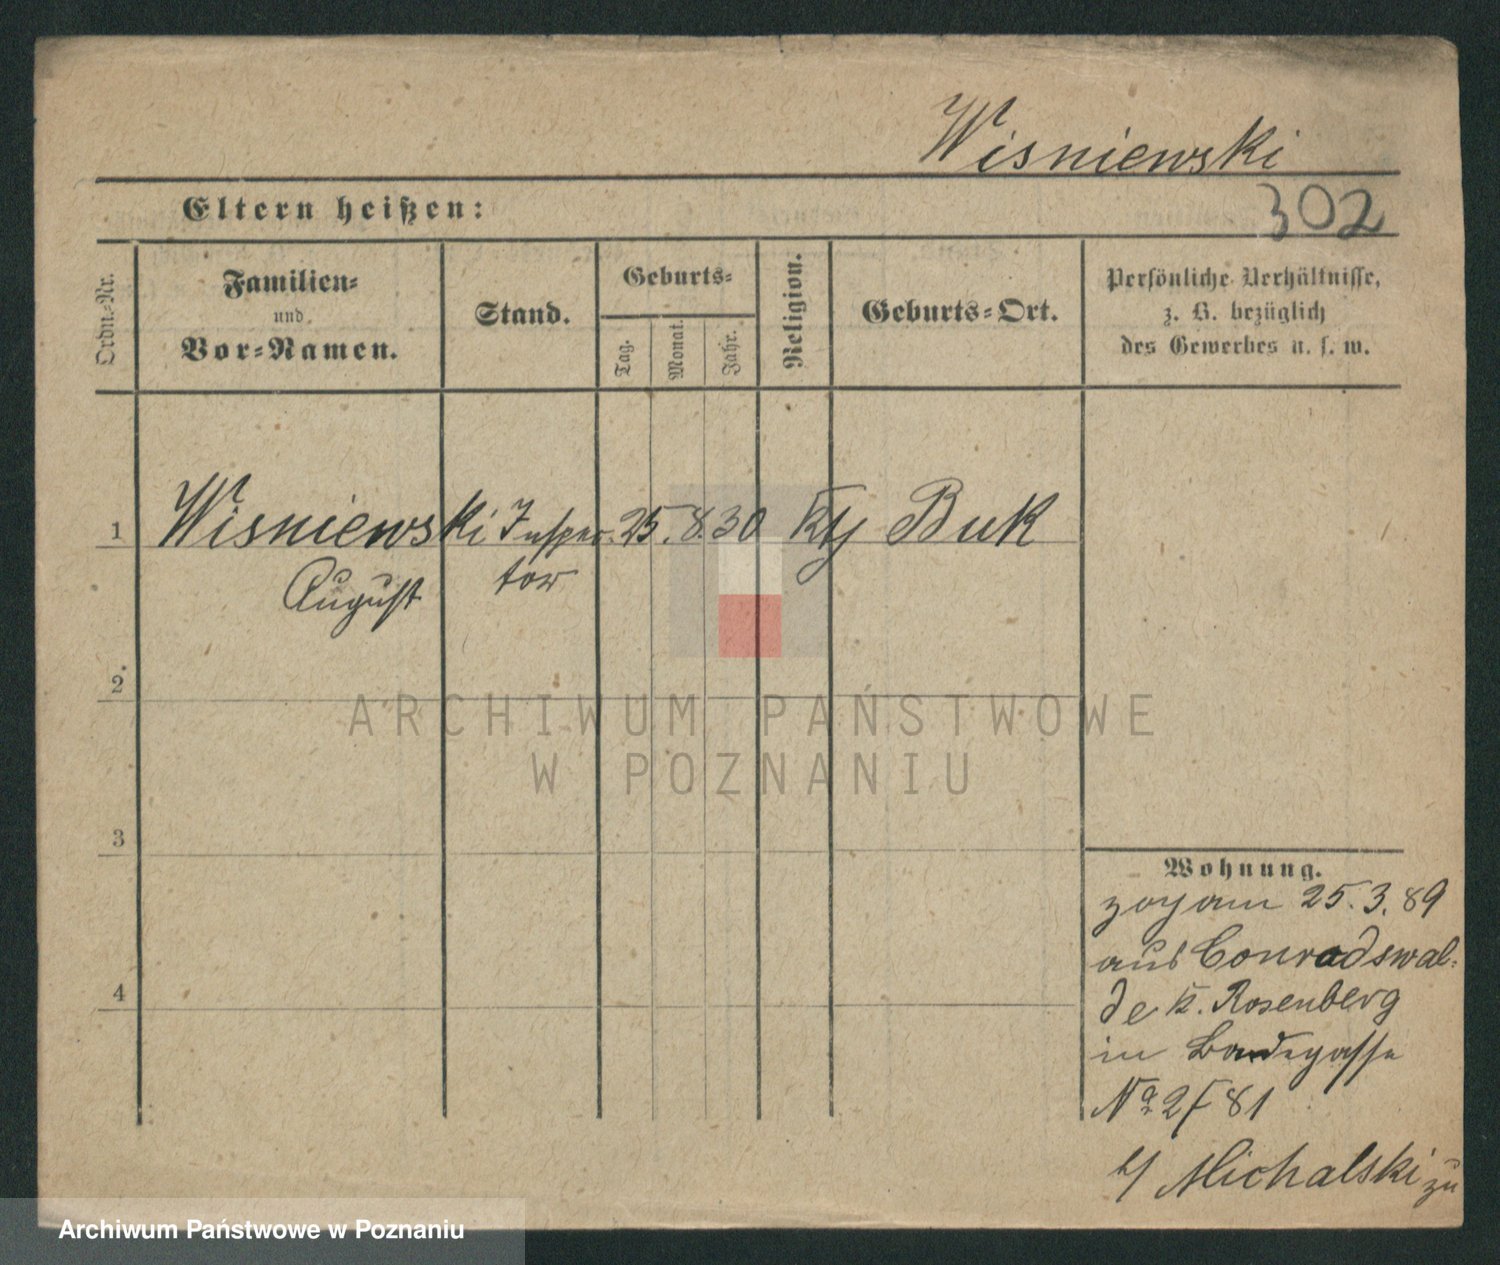 Wisniewski
302
Eltern heißen:
Ordn.-Nr.
Familien-
und
Vor-Namen.
Stand.
Geburts-
Tag.
Monat.
Jahr.
Religion.
Geburts-Ort.
Persönliche Verhältnisse,
z. B. bezüglich
des Gewerbes u. s. w.
1 Wisniewski Inspec- 25. 8. 30 Buk
August tor
2
3
4
ARCHIWUM PAŃSTWOWE
W POZNANIU
Wohnung.
zog am 25. 3. 89
aus Conradswal-
de K. Rosenberg
in Badegasse
No 2/81
b/ Michalski zu
Archiwum Państwowe w Poznaniu